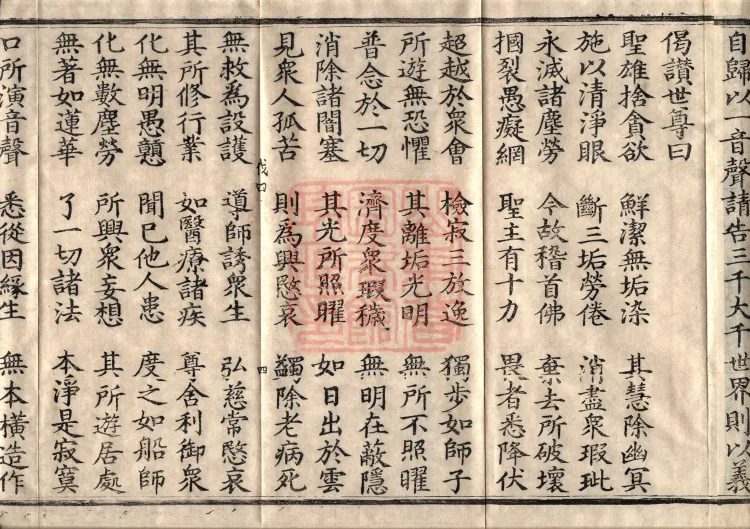 自歸以一音聲請告三千大千世界則以義
偈讚世尊曰
聖雄捨貪欲 鮮潔無垢染 其慧除幽冥
施以清淨眼 斷三垢勞倦 消盡衆瑕玼
永滅諸塵勞 今故稽首佛 棄去所破壞
摑裂愚癡網 聖主有十力 畏者悉降伏
超越於衆會 檢寂三放逸 獨步如師子
所遊無恐懼 其離垢光明 無所不照曜
普念於一切 濟度衆瑕穢 無明在蔽隱
消除諸闇塞 其光所照曜 如日出於雲
見衆人孤苦 則為興愍哀 蠲除老病死
伐四 四
無救為設護 導師誘衆生 弘慈常愍哀
其所修行業 如醫療諸疾 尊舍利御衆
化無明愚戇 聞已他人患 度之如船師
化無數塵勞 所興衆妄想 其所遊居處
無著如蓮華 了一切諸法 本淨是寂寞
口所演音聲 悉從因緣生 無本橫造作